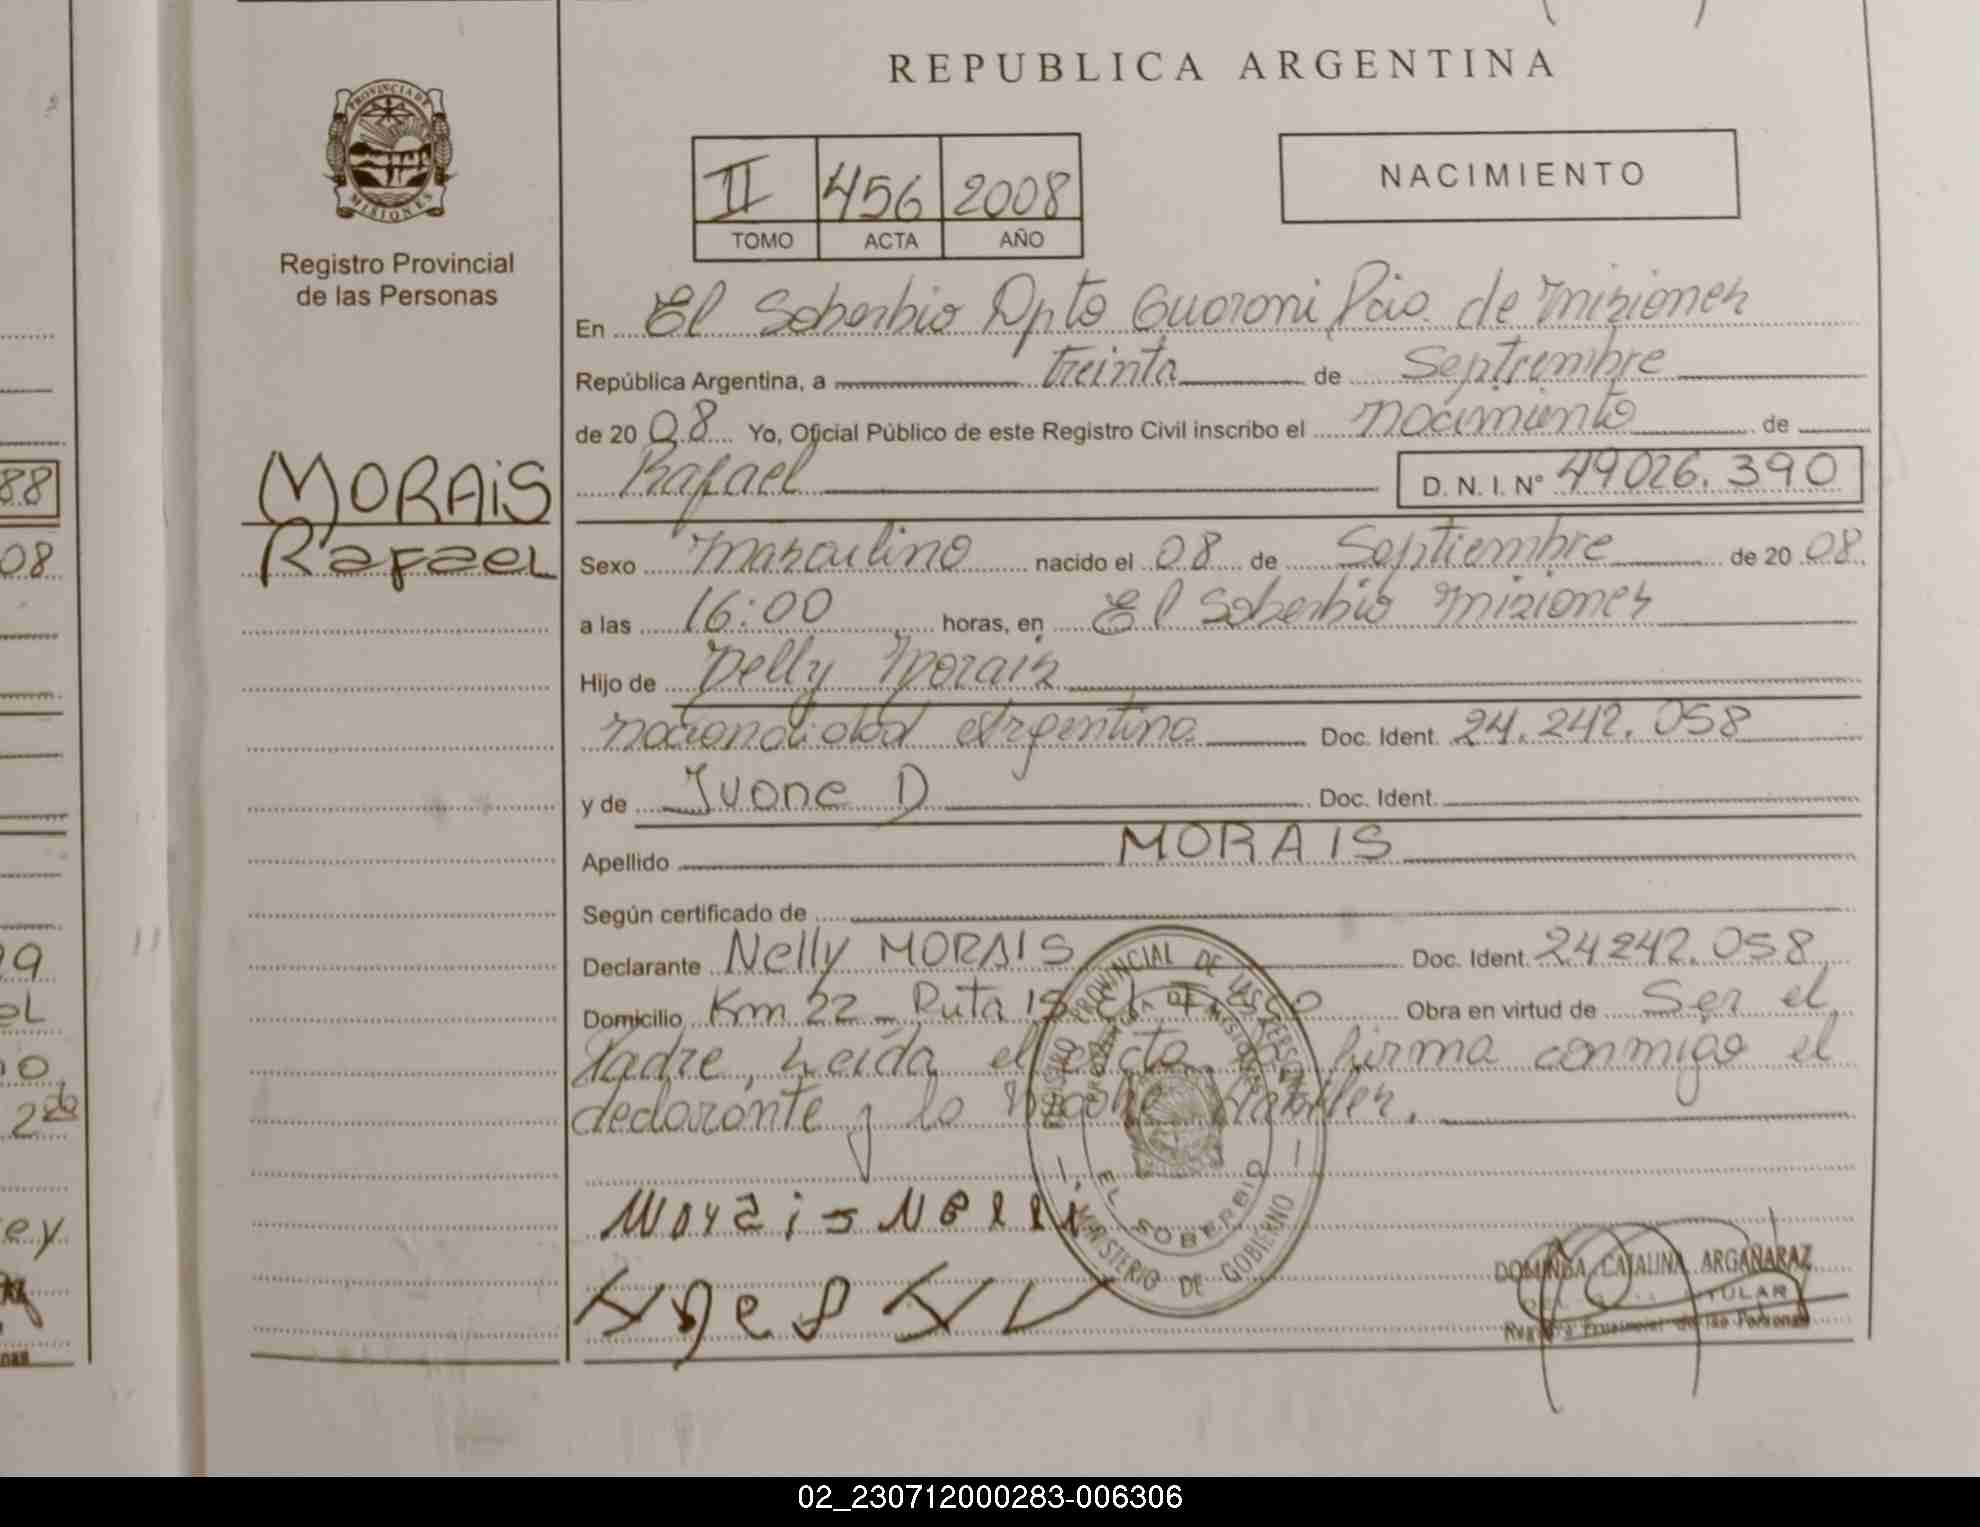 REPUBLICA ARGENTINA
PROVINCIA DE
MISIONES
Registro Provincial
de las Personas
II 456 2008
TOMO ACTA AÑO
NACIMIENTO
En El Soberbio Dpto Guaraní Pcia. de Misiones
República Argentina, a treinta de Septiembre
de 20 08 Yo, Oficial Público de este Registro Civil inscribo el nacimiento de
Rafael D. N. I. N° 49026.390
MORAiS
Rafael
Sexo masculino nacido el 08 de Septiembre de 20 08
a las 16:00 horas, en El Soberbio Misiones
Hijo de Nelly Morais
nacionalidad Argentina Doc. Ident. 24.242.058
y de Ivone D Doc. Ident.
Apellido MORAIS
Según certificado de
Declarante Nelly MORAIS Doc. Ident. 24242.058
Domicilio Km 22 - Ruta 15 Obra en virtud de Ser el
Padre, Leída el acta, firma conmigo el
declarante y la
REGISTRO PROVINCIAL DE LAS PERSONAS
MINISTERIO DE GOBIERNO
EL SOBERBIO
Morais Nelli
DOMINGA CATALINA ARGAÑARAZ
TITULAR
Registro Provincial de las Personas
88
08
99
2do
ey
02_230712000283-006306